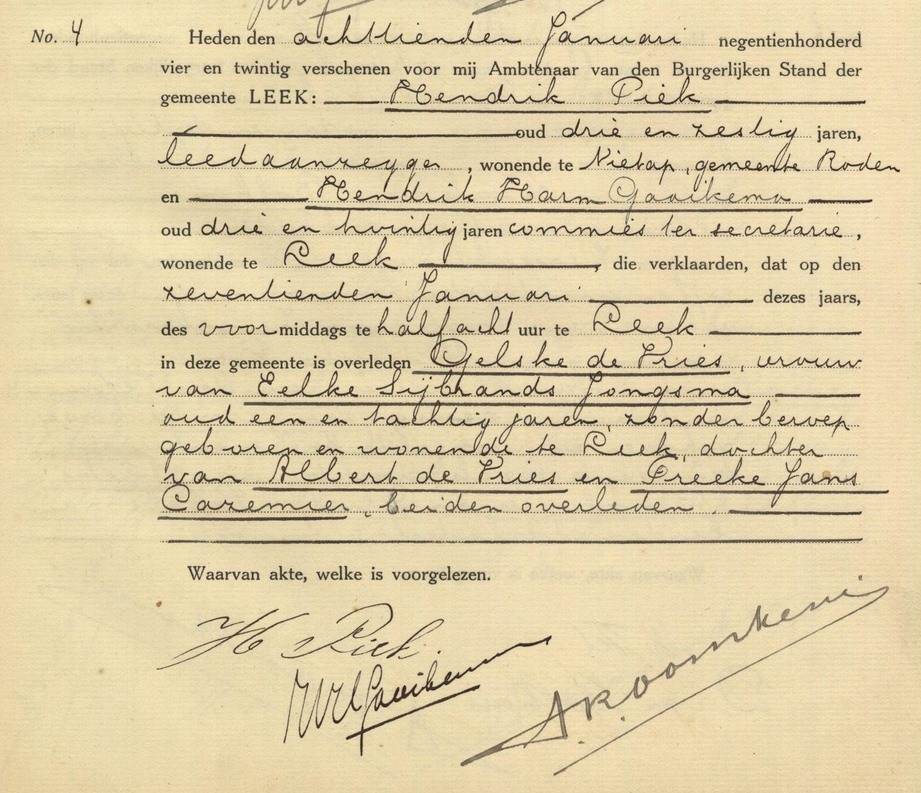 No. 4 Heden den achttienden Januari negentienhonderd
vier en twintig verschenen voor mij Ambtenaar van den Burgerlijken Stand der
gemeente LEEK: Hendrik Piek
oud drie en zestig jaren,
leedaanzegger, wonende te Nietap, gemeente Roden
en Hendrik Harm Gaaikema
oud drie en twintig jaren commies ter secretarie,
wonende te Leek, die verklaarden, dat op den
zeventienden Januari dezes jaars,
des voormiddags te half acht uur te Leek
in deze gemeente is overleden Gelske de Vries, vrouw
van Eelke Sijbrands Jongsma
oud een en tachtig jaren, zonder beroep
geboren en wonende te Leek, dochter
van Albert de Vries en Preeke Jans
Cazemier, beiden overleden.
Waarvan akte, welke is voorgelezen.
H Piek.
HHGaaikema